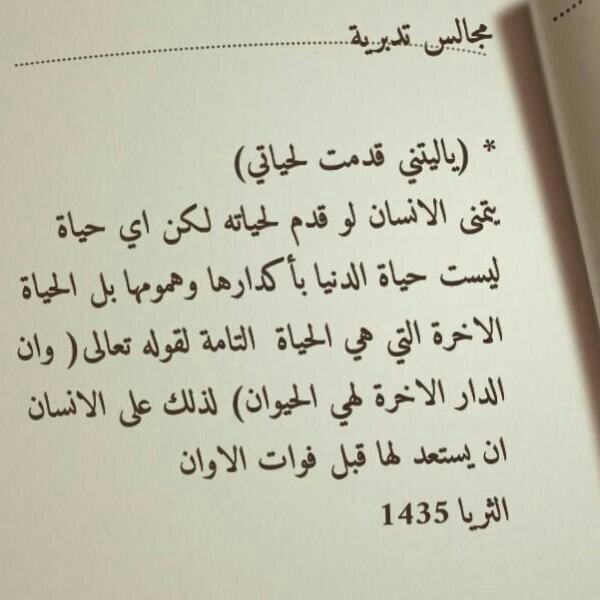 مجالس تدبرية
* (ياليتني قدمت لحياتي)
يتمنى الانسان لو قدم لحياته لكن اي حياة
ليست حياة الدنيا بأكدارها وهمومها بل الحياة
الاخرة التي هي الحياة التامة لقوله تعالى( وان
الدار الاخرة لهي الحيوان) لذلك على الانسان
ان يستعد لها قبل فوات الاوان
الثريا 1435